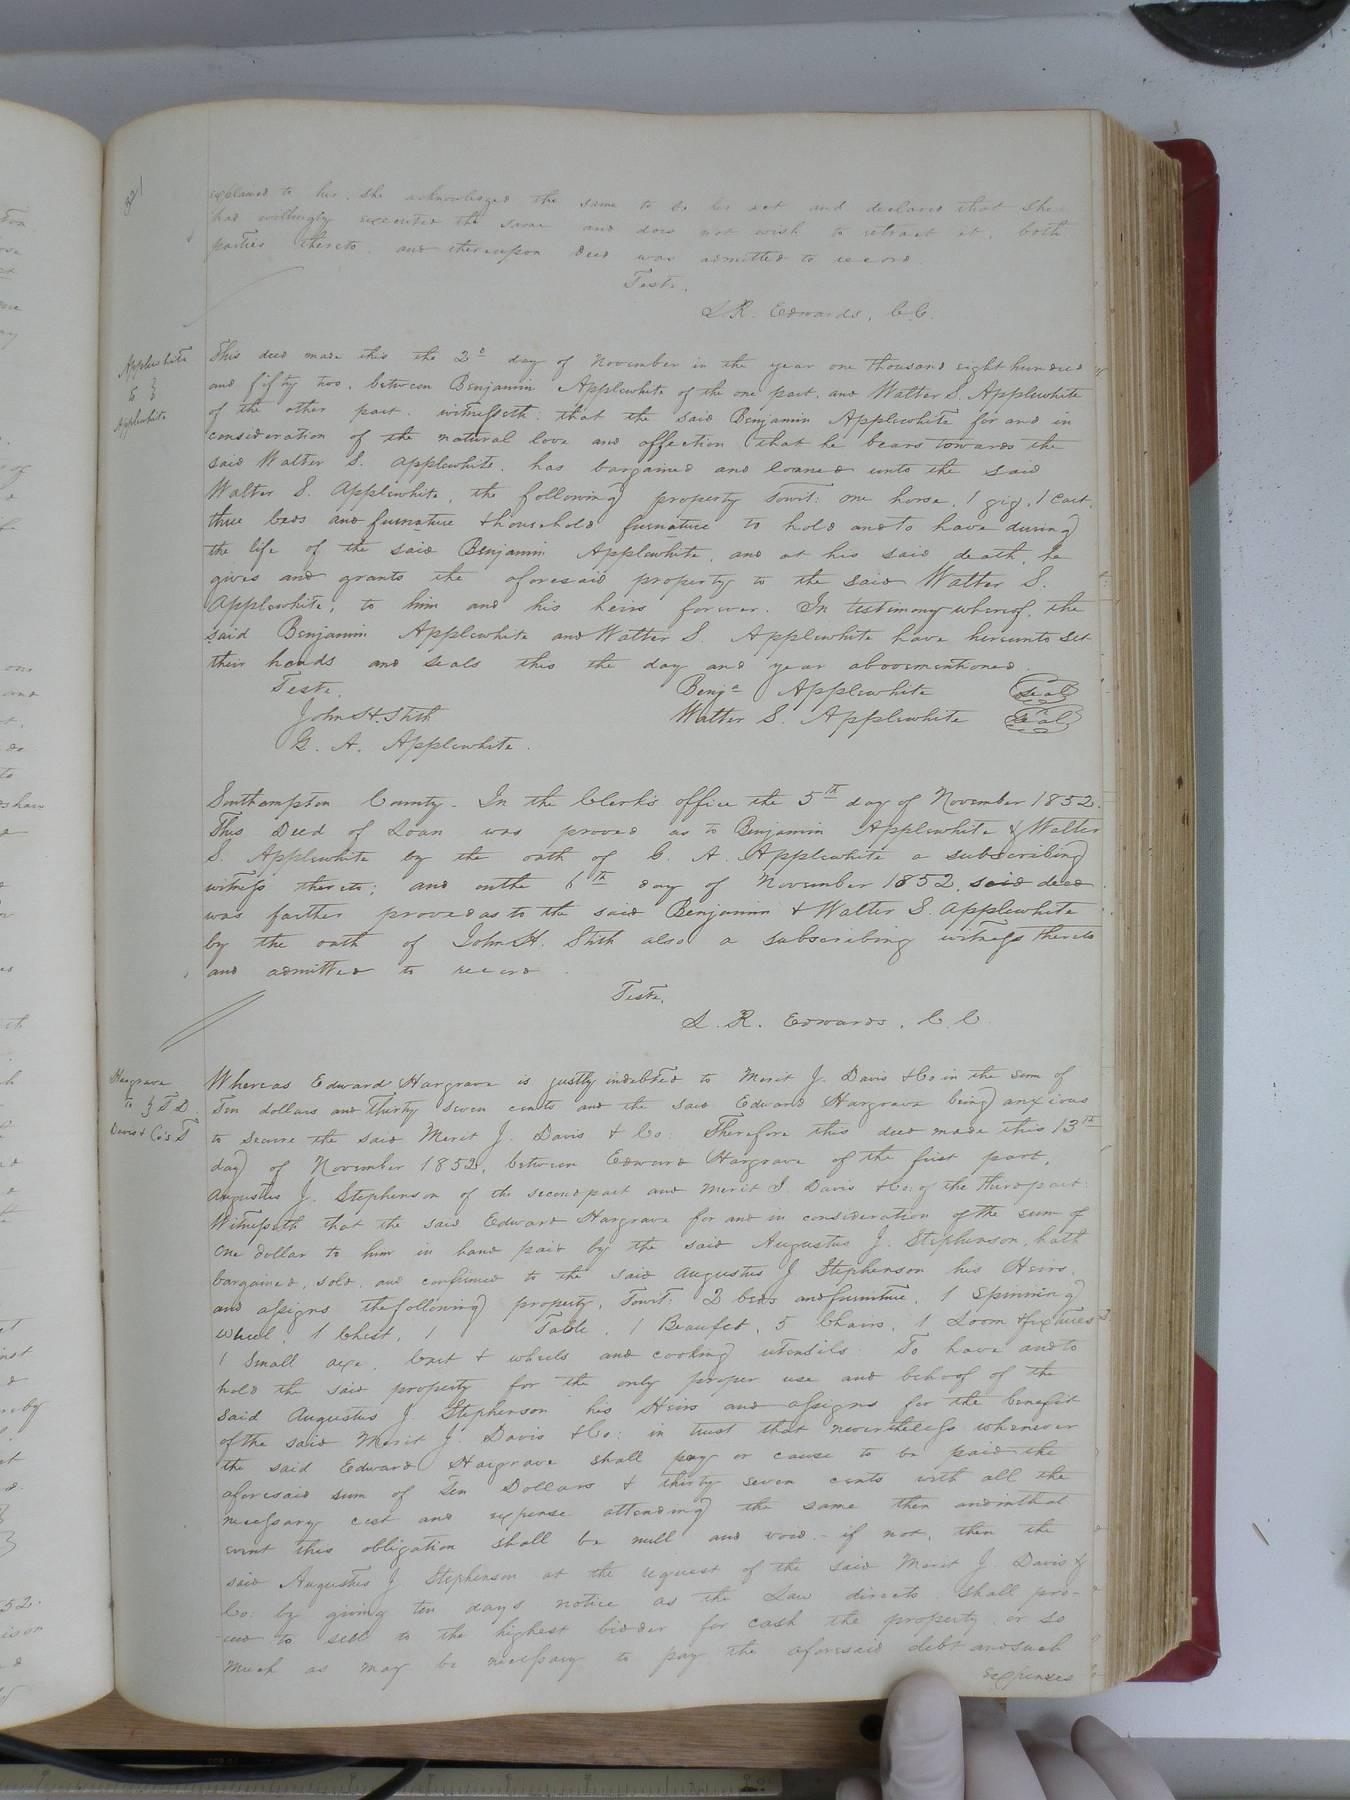 explained to her, she acknowledged the same to be her act and declared that she
had willingly executed the same and does not wish to retract it, both
parties thereto, and thereupon deed was admitted to record.
Teste,
L. R. Edwards, C.C.
Applewhite
to
Applewhite
This deed made this the 2d day of November in the year one thousand eight hundred
and fifty two, between Benjamin Applewhite of the one part, and Walter S. Applewhite
of the other part. witnesseth: that the said Benjamin Applewhite for and in
consideration of the natural love and affection that he bears towards the
said Walter S. Applewhite, has bargained and loaned unto the said
Walter S. Applewhite, the following property towit: one horse, 1 gig, 1 Cart,
three beds and furnature & household furnature to hold and to have during
the life of the said Benjamin Applewhite, and at his said death, he
gives and grants the aforesaid property to the said Walter S.
Applewhite, to him and his heirs forever. In testimony whereof, the
said Benjamin Applewhite and Walter S. Applewhite have hereunto set
their hands and seals this the day and year abovementioned.
Teste, Benja Applewhite Seal
John H. Stith Walter S. Applewhite Seal
G. A. Applewhite.
Southampton County. In the Clerk's office the 5th day of November 1852.
This Deed of Loan was proved as to Benjamin Applewhite & Walter
S. Applewhite by the oath of G. A. Applewhite a subscribing
witness thereto; and on the 6th day of November 1852, said deed
was farther proved as to the said Benjamin & Walter S. Applewhite
by the oath of John H. Stith also a subscribing witness thereto
and admitted to record.
Teste,
L. R. Edwards, C. C.
Hargrave
to T D
Davis & Co's T
Whereas Edward Hargrave is justly indebted to Merit J. Davis & Co in the sum of
Ten dollars and Thirty seven cents and the said Edward Hargrave being anxious
to secure the said Merit J. Davis & Co: Therefore this deed made this 13th
day of November 1852, between Edward Hargrave of the first part,
Augustus J. Stephenson of the second part and Merit J. Davis & Co: of the third part:
Witnesseth that the said Edward Hargrave for and in consideration of the sum of
One dollar to him in hand paid by the said Augustus J. Stephenson, hath
bargained, sold, and confirmed to the said Augustus J. Stephenson his Heirs,
and assigns the following property, Towit: 2 beds and furniture, 1 Spinning
wheel, 1 Chest, 1 Table, 1 Beaufet, 5 Chairs, 1 Loom & fixtures
1 Small axe, Cart & wheels and cooking utensils. To have and to
hold the said property for the only proper use and behoof of the
said Augustus J. Stephenson his Heirs and assigns for the benefit
of the said Merit J. Davis & Co: in trust that nevertheless whenever
the said Edward Hargrave shall pay or cause to be paid the
aforesaid sum of Ten Dollars & thirty seven cents with all the
necessary cost and expense attending the same then and in that
event this obligation shall be null and void - if not, then the
said Augustus J Stephenson at the request of the said Merit J. Davis &
Co: by giving ten days notice as the Law directs shall pro-
ceed to sell to the highest bidder for cash the property, or so
much as may be necessary to pay the aforesaid debt and such
expenses